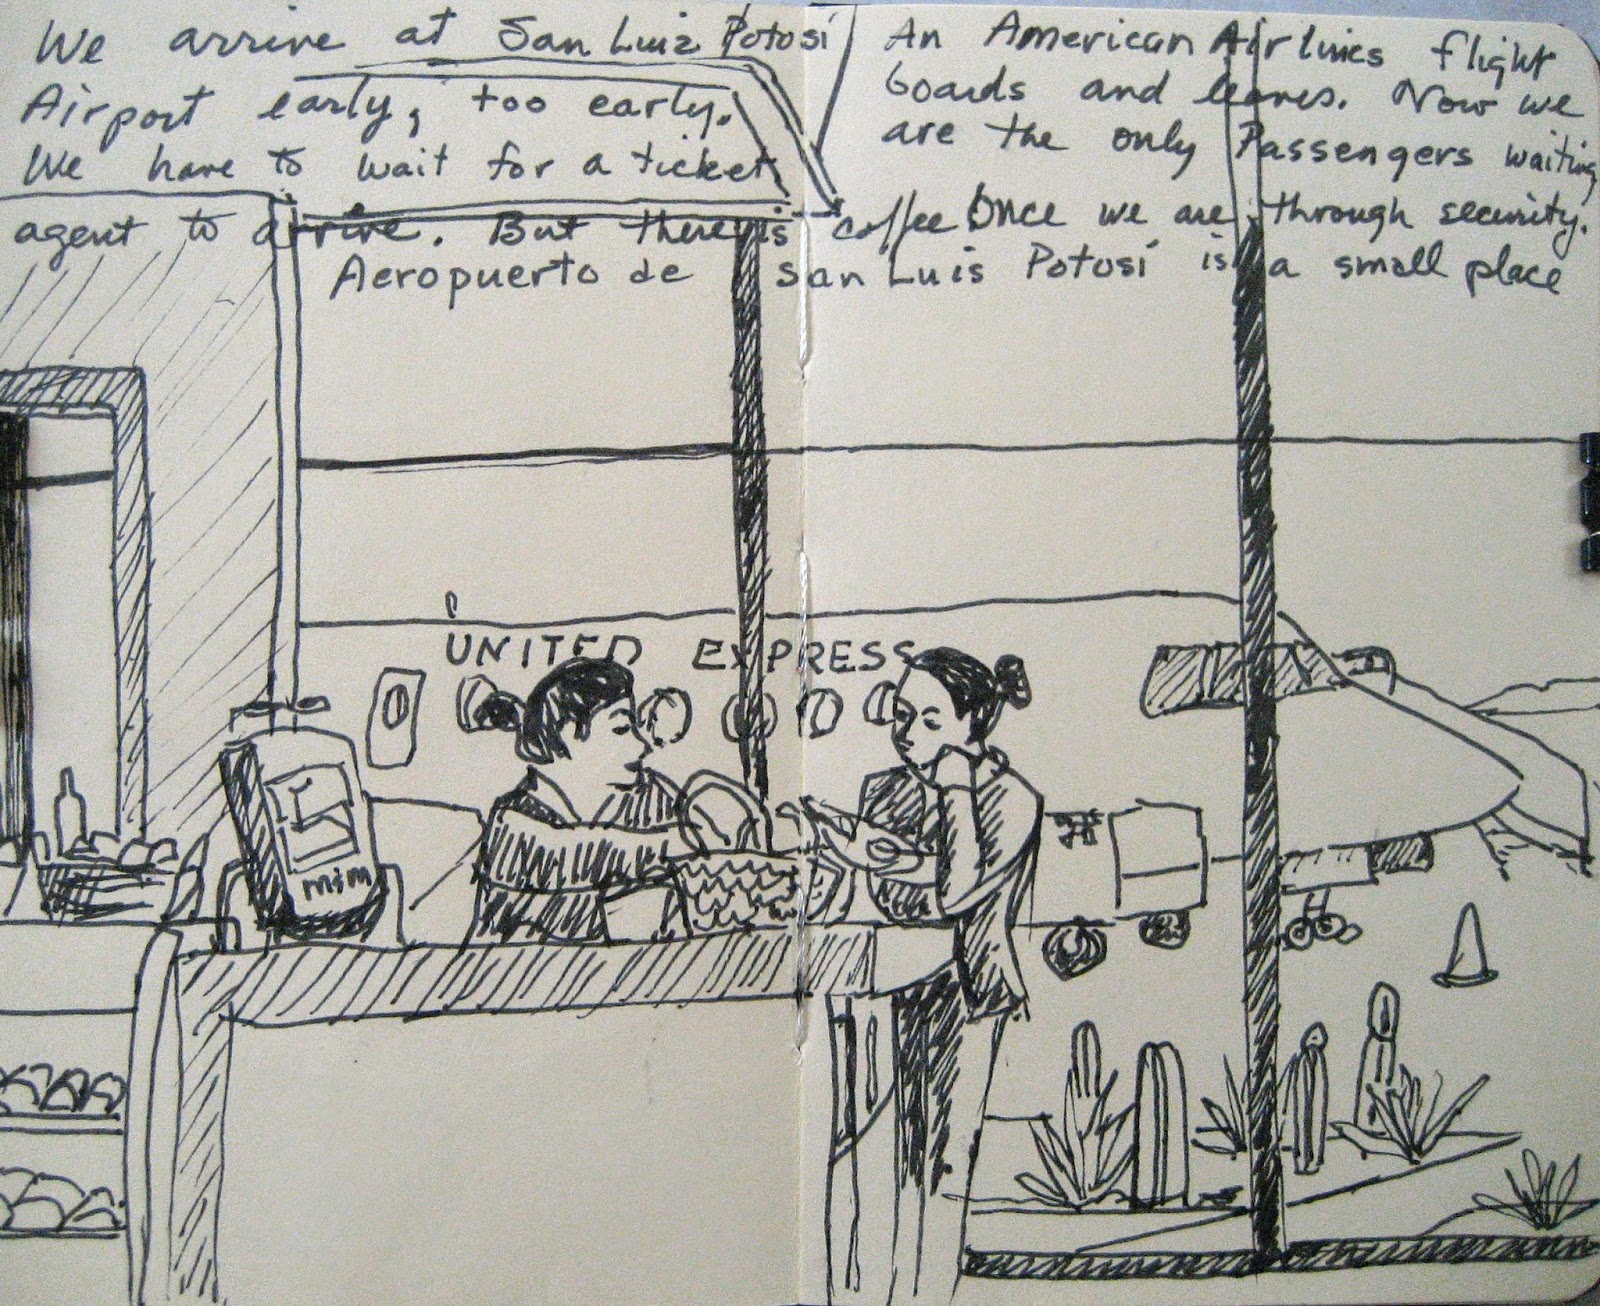 We arrive at San Luiz Potosi
Airport early, too early.
We have to wait for a ticket
agent to arrive. But there is coffee Once we are through security.
An American Airlines flight
boards and leaves. Now we
are the only Passengers waiting
Aeropuerto de San Luis Potosí is a small place
UNITED EXPRESS
m&m